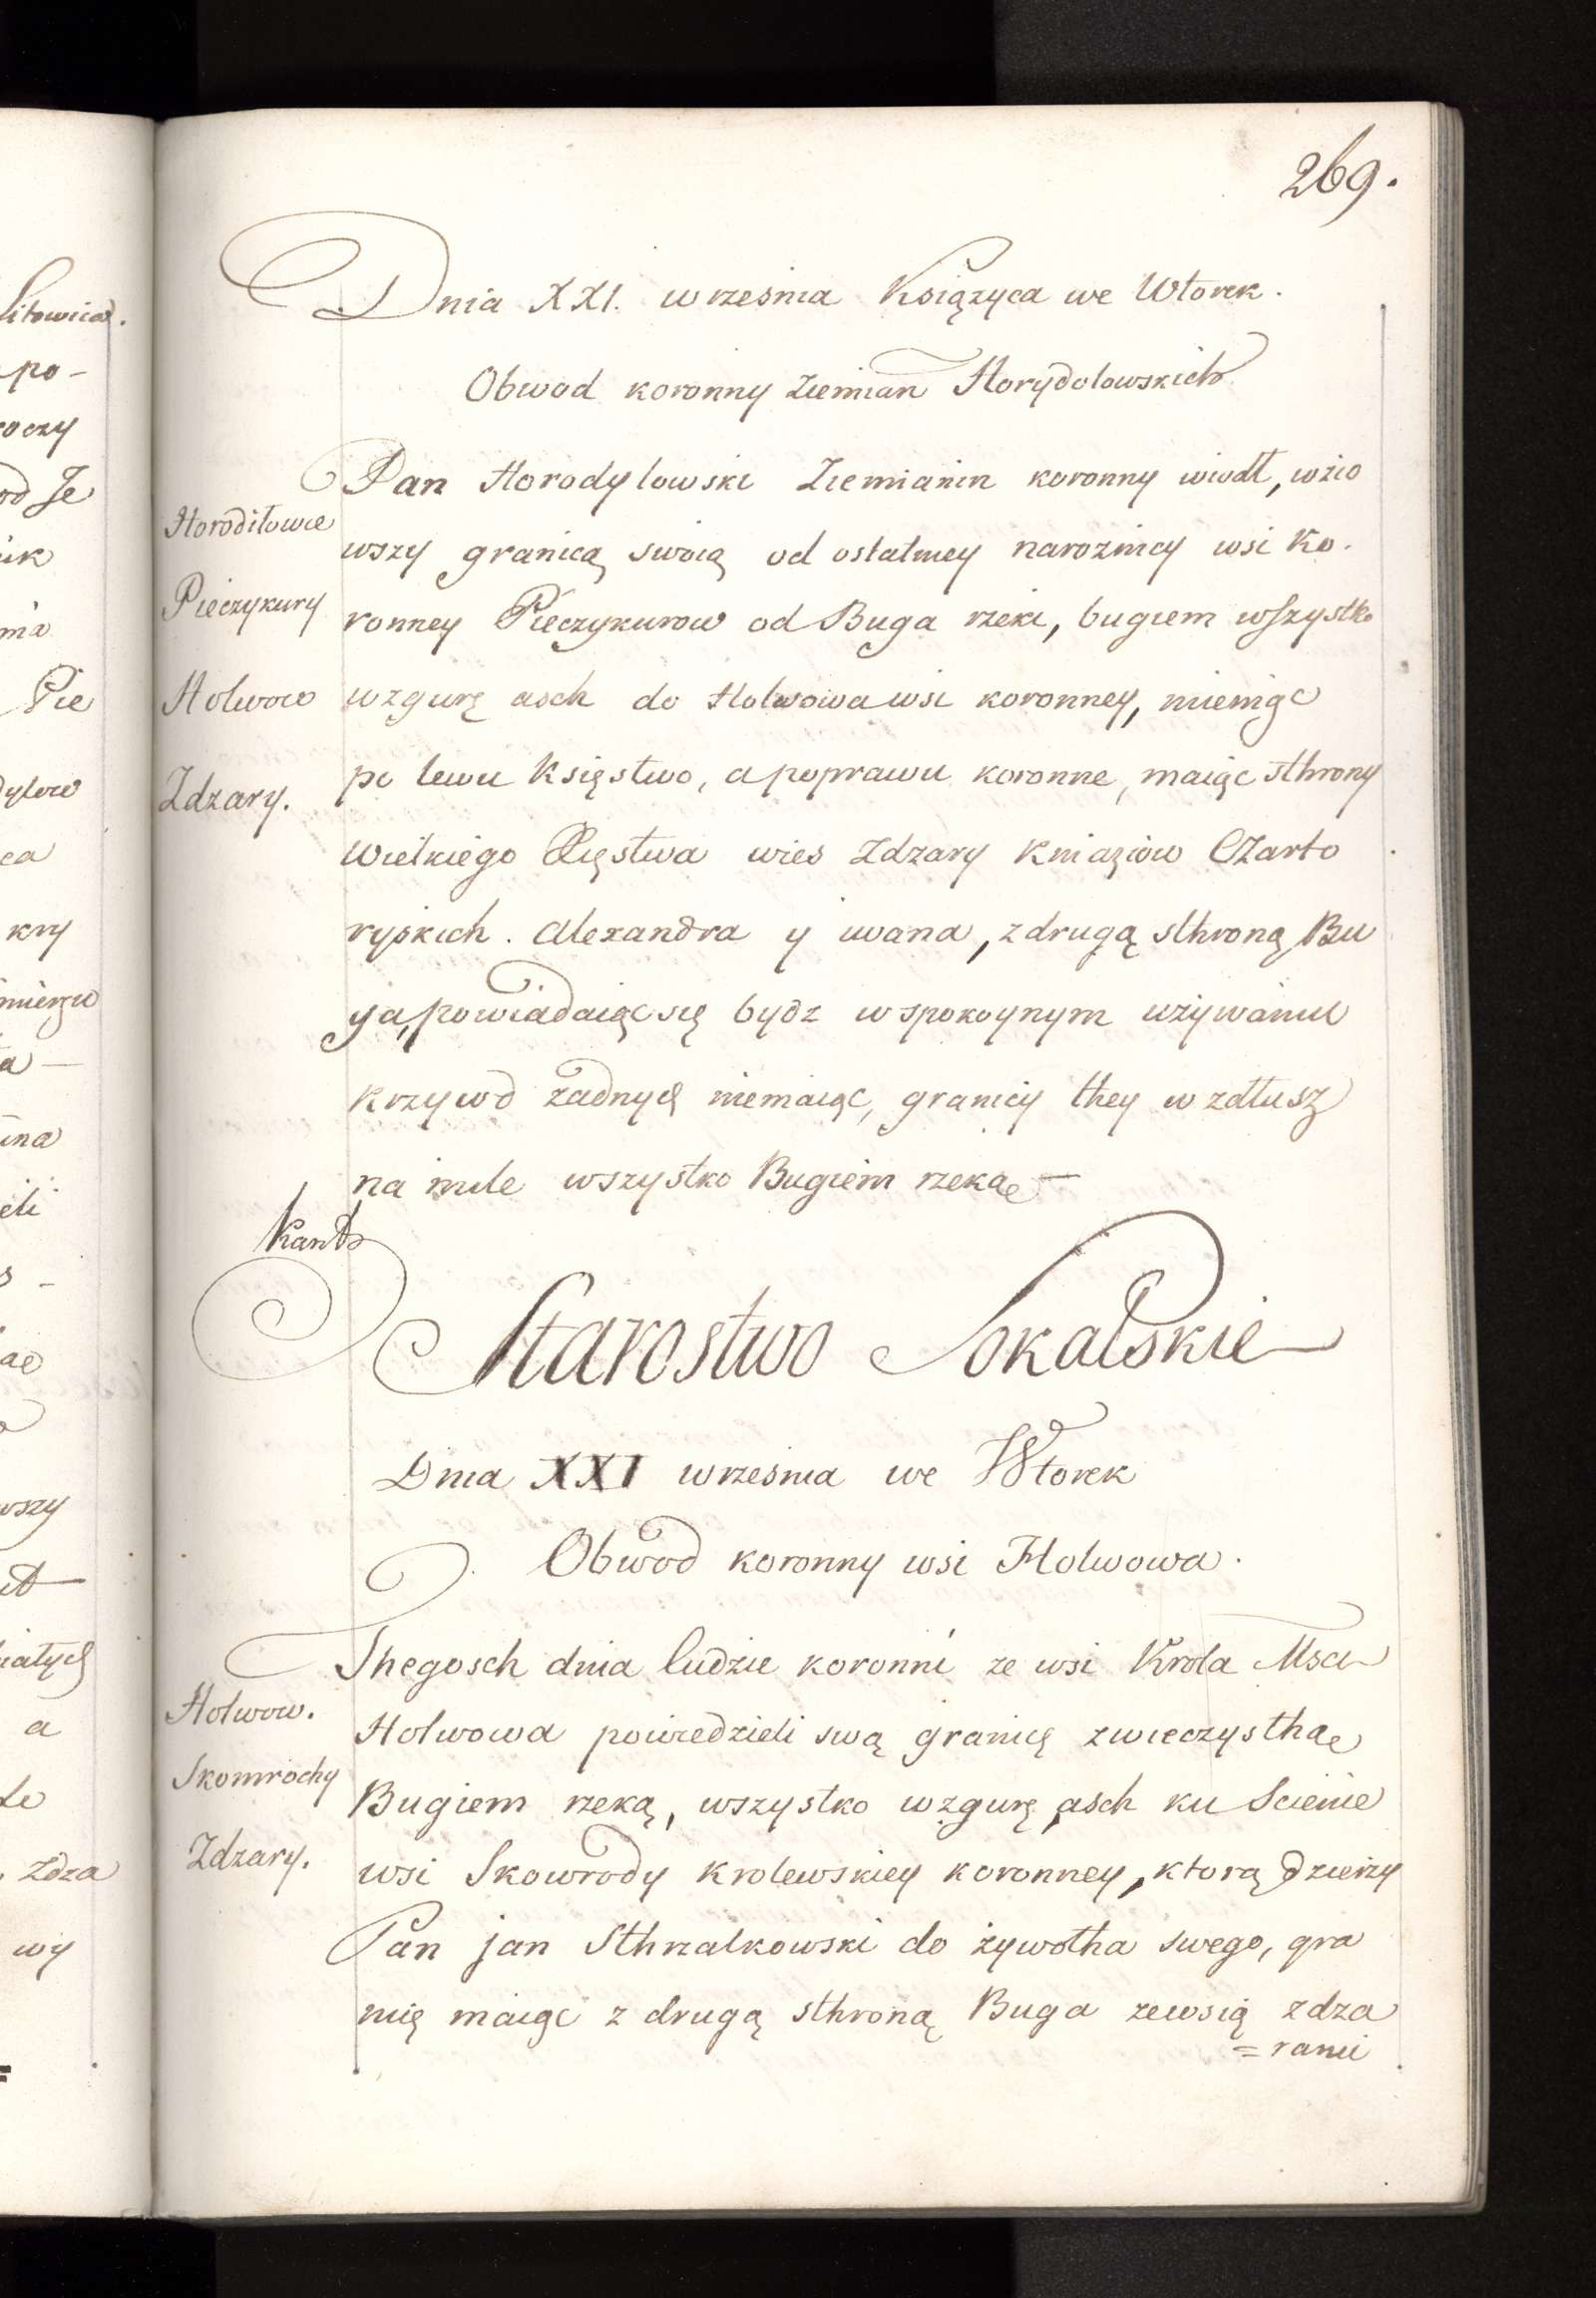 269.
Dnia XXI. wrzesnia Książyca we Wtorek.
Obwod koronny Ziemian Horydolowskich
Pan Horodylowski Ziemianin koronny wiodł, wzio
Horodiłowce
wszy granicą swoią od ostatniey naroznicy wsi Ko.
Pieczykury
ronney Pieczykurow od Buga rzeki, bugiem wszystko
Holwow
wzgurę asch do Holwowa wsi koronney, mieniąc
po lewu Księstwo, a poprawu koronne, maiąc sthrony
Zdzary.
Wielkiego Xięstwa wies Zdzary Kniaziow Czarto
ryskich. Alexandra y iwana, z drugą sthroną Bu
ga, powiadaiąc się bydz w spokoynym używaniu
krzywd żadnych niemaiąc, granicy they w zdłusz
na mile wszystko Bugiem rzeką —
Kant
Starostwo Sokalskie
Dnia XXI wrzesnia we Wtorek
Obwod koronny wsi Holwowa.
Thegosch dnia ludzie koronni ze wsi Krola Msci
Holwow.
Holwowa powiedzieli swą granicę zwieczysthą
Skomrochy
Bugiem rzeką, wszystko wzgurę asch ku Scienie
Zdzary.
wsi Skowrody krolewskiey koronney, ktorą dzierzy
Pan jan Sthrzalkowski do żywotha swego, gra
nię maiąc z drugą sthroną Buga zewsią zdza
=rami
Litowica.
po-
oczy
od Je
Pie
ca
kry
a —
wszy
a
Zdza
wy